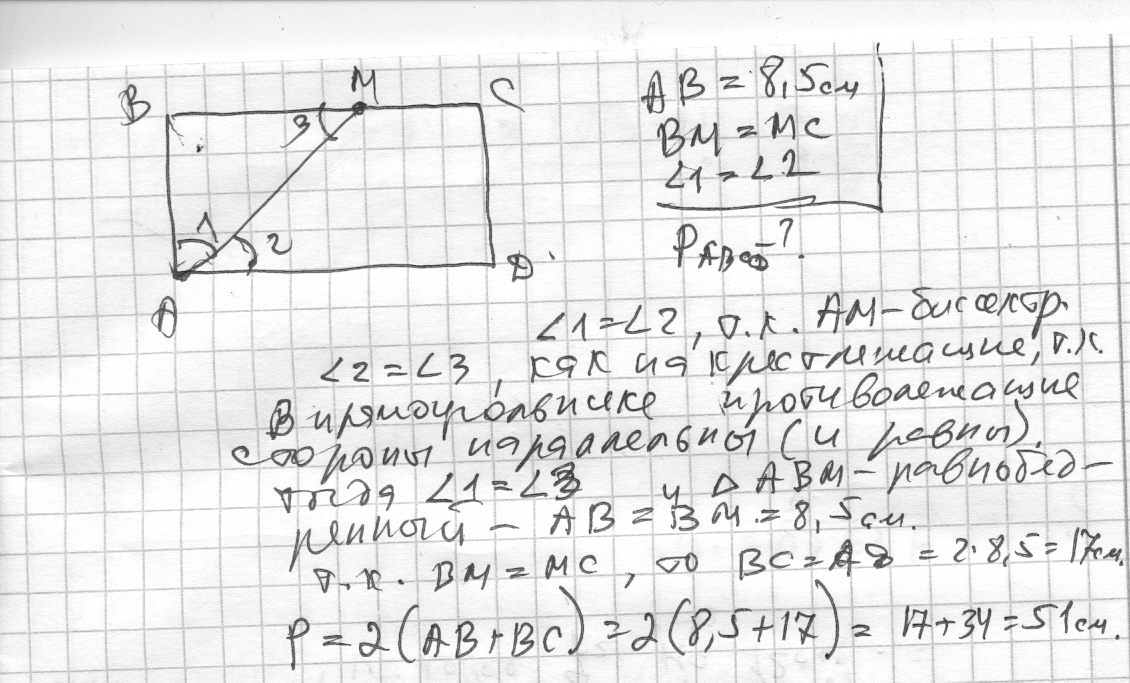 B
M
C
3
1
2
A
D
AB = 8,5 см
BM = MC
∠1 = ∠2
P ABCD - ?
∠1 = ∠2, т.к. AM - биссектр.
∠2 = ∠3, как накрестлежащие, т.к.
в прямоугольнике противолежащие
стороны параллельны (и равны).
тогда ∠1 = ∠3 и △ABM - равнобед-
ренный - AB = BM = 8,5 см.
т.к. BM = MC, то BC = = 2·8,5 = 17 см.
P = 2(AB + BC) = 2(8,5 + 17) = 17 + 34 = 51 см.